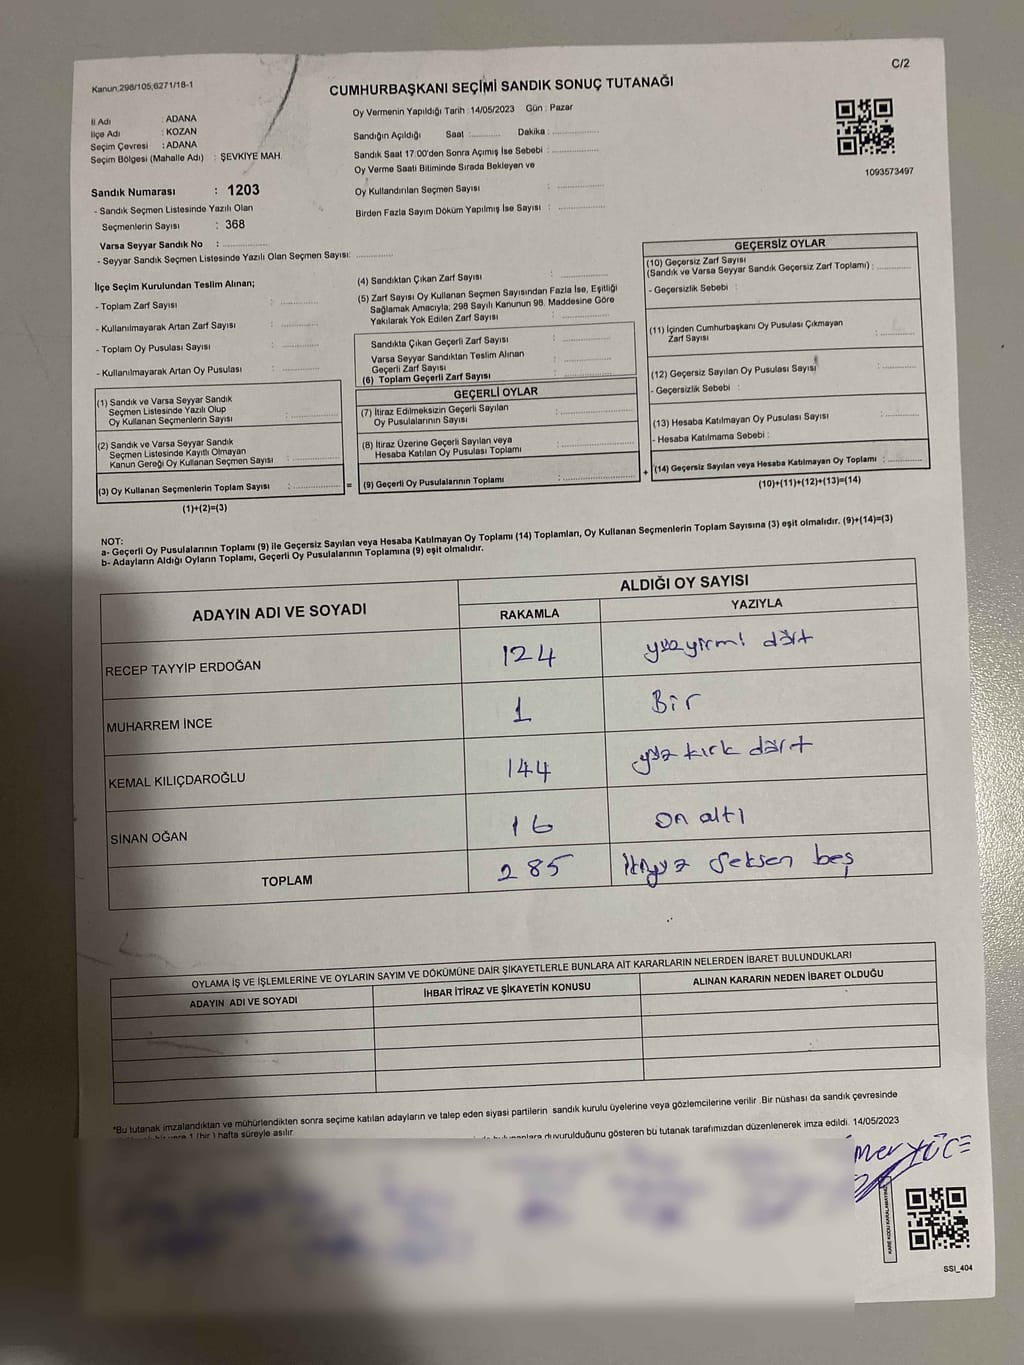 Kanun,298/105,6271/18-1
C/2
CUMHURBAŞKANI SEÇİMİ SANDIK SONUÇ TUTANAĞI
Oy Vermenin Yapıldığı Tarih :14/05/2023 Gün : Pazar
İl Adı : ADANA
İlçe Adı : KOZAN
Seçim Çevresi : ADANA
Seçim Bölgesi (Mahalle Adı) : ŞEVKİYE MAH.
Sandık Numarası : 1203
- Sandık Seçmen Listesinde Yazılı Olan
Seçmenlerin Sayısı : 368
Varsa Seyyar Sandık No : ............
- Seyyar Sandık Seçmen Listesinde Yazılı Olan Seçmen Sayısı: ............
Sandığın Açıldığı Saat :............ Dakika : ............
Sandık Saat 17:00'den Sonra Açımış İse Sebebi : ............
Oy Verme Saati Bitiminde Sırada Bekleyen ve
Oy Kullandırılan Seçmen Sayısı : ............
Birden Fazla Sayım Döküm Yapılmış İse Sayısı : ............
1093573497
İlçe Seçim Kurulundan Teslim Alınan;
- Toplam Zarf Sayısı : ............
- Kullanılmayarak Artan Zarf Sayısı : ............
- Toplam Oy Pusulası Sayısı : ............
- Kullanılmayarak Artan Oy Pusulası : ............
(1) Sandık ve Varsa Seyyar Sandık
Seçmen Listesinde Yazılı Olup
Oy Kullanan Seçmenlerin Sayısı : ............
(2) Sandık ve Varsa Seyyar Sandık
Seçmen Listesinde Kayıtlı Olmayan
Kanun Gereği Oy Kullanan Seçmen Sayısı : ............
(3) Oy Kullanan Seçmenlerin Toplam Sayısı : ............
(1)+(2)=(3)
=
(4) Sandıktan Çıkan Zarf Sayısı : ............
(5) Zarf Sayısı Oy Kullanan Seçmen Sayısından Fazla İse, Eşitliği
Sağlamak Amacıyla; 298 Sayılı Kanunun 98. Maddesine Göre
Yakılarak Yok Edilen Zarf Sayısı : ............
Sandıkta Çıkan Geçerli Zarf Sayısı : ............
Varsa Seyyar Sandıktan Teslim Alınan
Geçerli Zarf Sayısı : ............
(6) Toplam Geçerli Zarf Sayısı : ............
GEÇERLİ OYLAR
(7) İtiraz Edilmeksizin Geçerli Sayılan
Oy Pusulalarının Sayısı : ............
(8) İtiraz Üzerine Geçerli Sayılan veya
Hesaba Katılan Oy Pusulası Toplamı : ............
(9) Geçerli Oy Pusulalarının Toplamı : ............
+
GEÇERSİZ OYLAR
(10) Geçersiz Zarf Sayısı
(Sandık ve Varsa Seyyar Sandık Geçersiz Zarf Toplamı) : ............
- Geçersizlik Sebebi :
(11) İçinden Cumhurbaşkanı Oy Pusulası Çıkmayan
Zarf Sayısı : ............
(12) Geçersiz Sayılan Oy Pusulası Sayısı : ............
- Geçersizlik Sebebi :
(13) Hesaba Katılmayan Oy Pusulası Sayısı : ............
- Hesaba Katılmama Sebebi :
(14) Geçersiz Sayılan veya Hesaba Katılmayan Oy Toplamı : ............
(10)+(11)+(12)+(13)=(14)
NOT:
a- Geçerli Oy Pusulalarının Toplamı (9) ile Geçersiz Sayılan veya Hesaba Katılmayan Oy Toplamı (14) Toplamları, Oy Kullanan Seçmenlerin Toplam Sayısına (3) eşit olmalıdır. (9)+(14)=(3)
b- Adayların Aldığı Oyların Toplamı, Geçerli Oy Pusulalarının Toplamına (9) eşit olmalıdır.
ADAYIN ADI VE SOYADI
ALDIĞI OY SAYISI
RAKAMLA YAZIYLA
RECEP TAYYİP ERDOĞAN 124 yüzyirmi dört
MUHARREM İNCE 1 Bir
KEMAL KILIÇDAROĞLU 144 yüz kırk dört
SİNAN OĞAN 16 on altı
TOPLAM 285 İkiyüz seksen beş
OYLAMA İŞ VE İŞLEMLERİNE VE OYLARIN SAYIM VE DÖKÜMÜNE DAİR ŞİKAYETLERLE BUNLARA AİT KARARLARIN NELERDEN İBARET BULUNDUKLARI
ADAYIN ADI VE SOYADI İHBAR İTİRAZ VE ŞİKAYETİN KONUSU ALINAN KARARIN NEDEN İBARET OLDUĞU
*Bu tutanak imzalandıktan ve mühürlendikten sonra seçime katılan adayların ve talep eden siyasi partilerin sandık kurulu üyelerine veya gözlemcilerine verilir .Bir nüshası da sandık çevresinde
1 (bir ) hafta süreyle asılır.
duyurulduğunu gösteren bu tutanak tarafımızdan düzenlenerek imza edildi. 14/05/2023
mer YÜCE
KARE KODU KARALAMAYINIZ
SSI_404